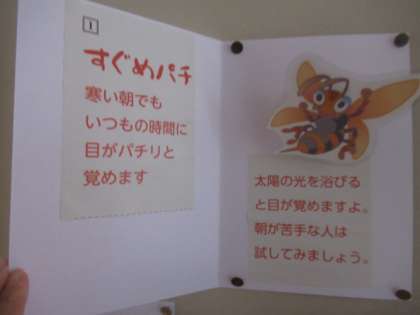 1
すぐめパチ
寒い朝でも
いつもの時間に
目がパチリと
覚めます
太陽の光を浴びる
と目が覚めますよ。
朝が苦手な人は
試してみましょう。